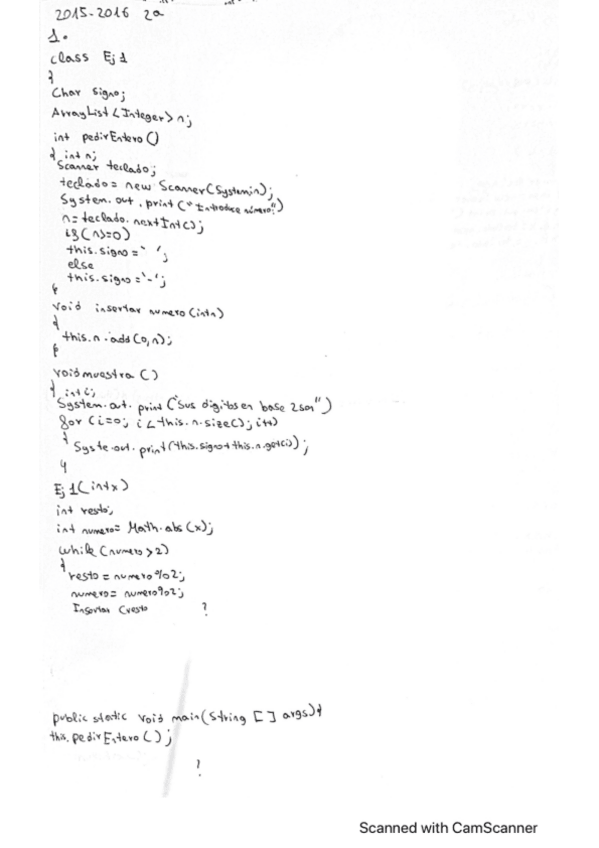 2015-2016 2a
1.
class Ej1
{
Char signo;
ArrayList<Integer> n;
int pedirEntero()
{ int n;
Scanner teclado;
teclado = new Scanner(System.in);
System.out.print("Introduce número:")
n = teclado.nextInt();
if(n>=0)
this.signo=' ';
else
this.signo='-';
}
Void insertar numero (int n)
{
this.n.add(0,n);
}
void muestra ()
{ int i;
System.out.print("Sus digitos en base 2 son")
for (i=0; i<this.n.size(); i++)
{ Syste.out.print(this.signo+this.n.get(i));
}
Ej1(int x)
int resto;
int numero= Math.abs(x);
while (numero>2)
{
resto = numero%2;
numero= numero%2;
Insertar (resto ?
public static void main(String [] args){
this.pedirEntero();
?
Scanned with CamScanner